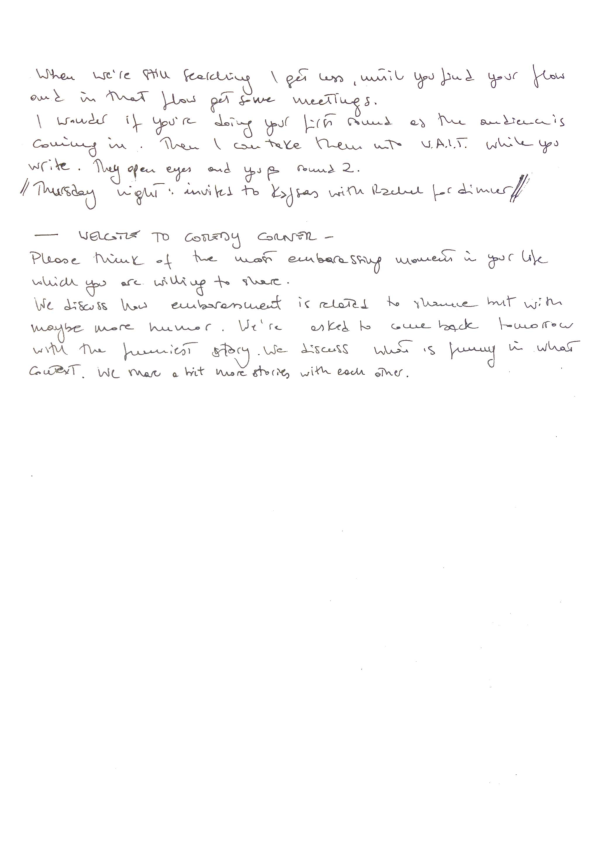 When we're still searching I get less, until you find your flow
and in that flow get some meetings.
I wonder if you're doing your first round as the audience is
coming in. Then I can take them into V.A.I.T. while you
write. They open eyes and you round 2.
// Thursday night: invited to with Rachel for dinner //
— WELCOME TO COMEDY CORNER –
Please think of the most embarassing moment in your life
which you are willing to share.
We discuss how embarassment is related to shame but with
maybe more humor. We're asked to come back tomorrow
with the funniest story. We discuss what is funny in what
context. We share a bit more stories with each other.